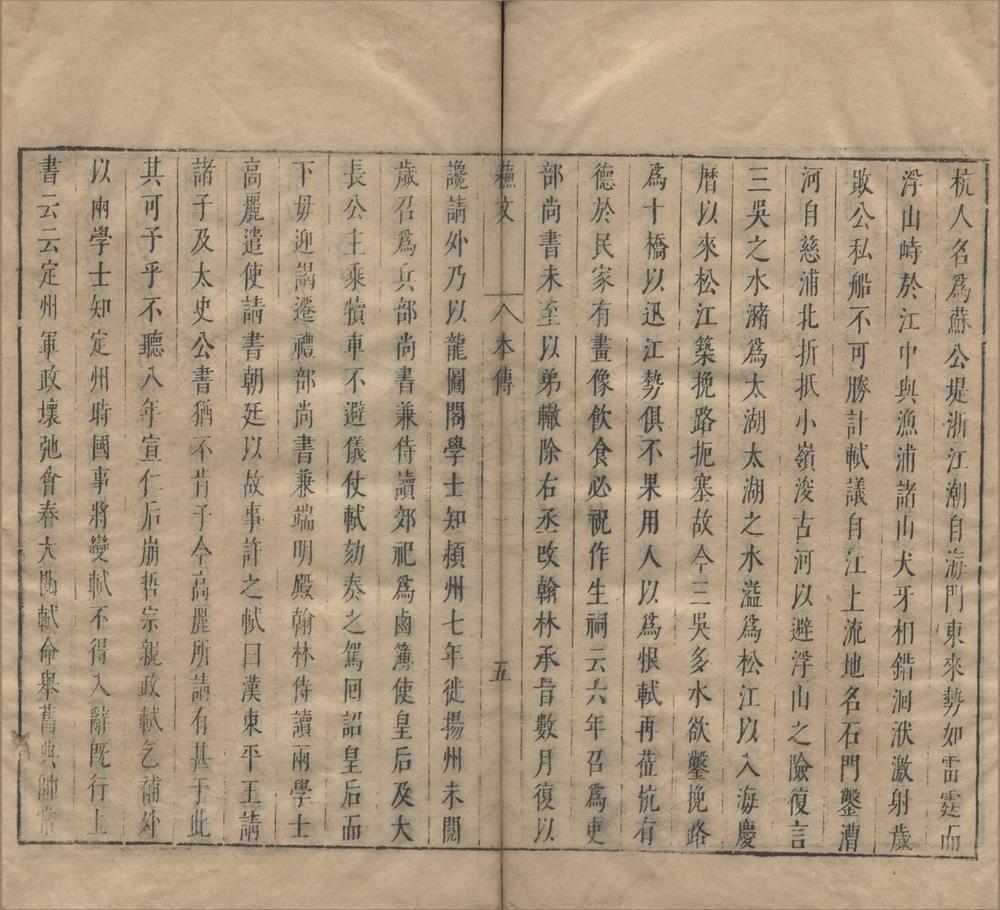 杭人名爲蘇公堤浙江潮自海門東來勢如雷霆而
浮山峙於江中與漁浦諸山犬牙相錯洄洑激射歲
敗公私船不可勝計軾議自江上流地名石門鑿漕
河自慈浦北折抵小嶺浚古河以避浮山之險復言
三吳之水瀦爲太湖太湖之水溢爲松江以入海慶
曆以來松江築挽路扼塞故今三吳多水欲鑿挽路
爲十橋以迅江勢俱不果用人以爲恨軾再莅杭有
德於民家有畫像飲食必祝作生祠云六年召爲吏
部尚書未至以弟轍除右丞改翰林承旨數月復以
蘇文 本傳 五
讒請外乃以龍圖閣學士知潁州七年徙揚州未閱
歲召爲兵部尚書兼侍讀郊祀爲鹵簿使皇后及大
長公主乘犢車不避儀仗軾劾奏之駕回詔皇后而
下毋迎謁遷禮部尚書兼端明殿翰林侍讀兩學士
高麗遣使請書朝廷以故事許之軾曰漢東平王請
諸子及太史公書猶不肯予今高麗所請有甚于此
其可予乎不聽八年宣仁后崩哲宗親政軾乞補外
以兩學士知定州時國事將變軾不得入辭旣行上
書云云定州軍政壞弛會春大閱軾命舉舊典帥常